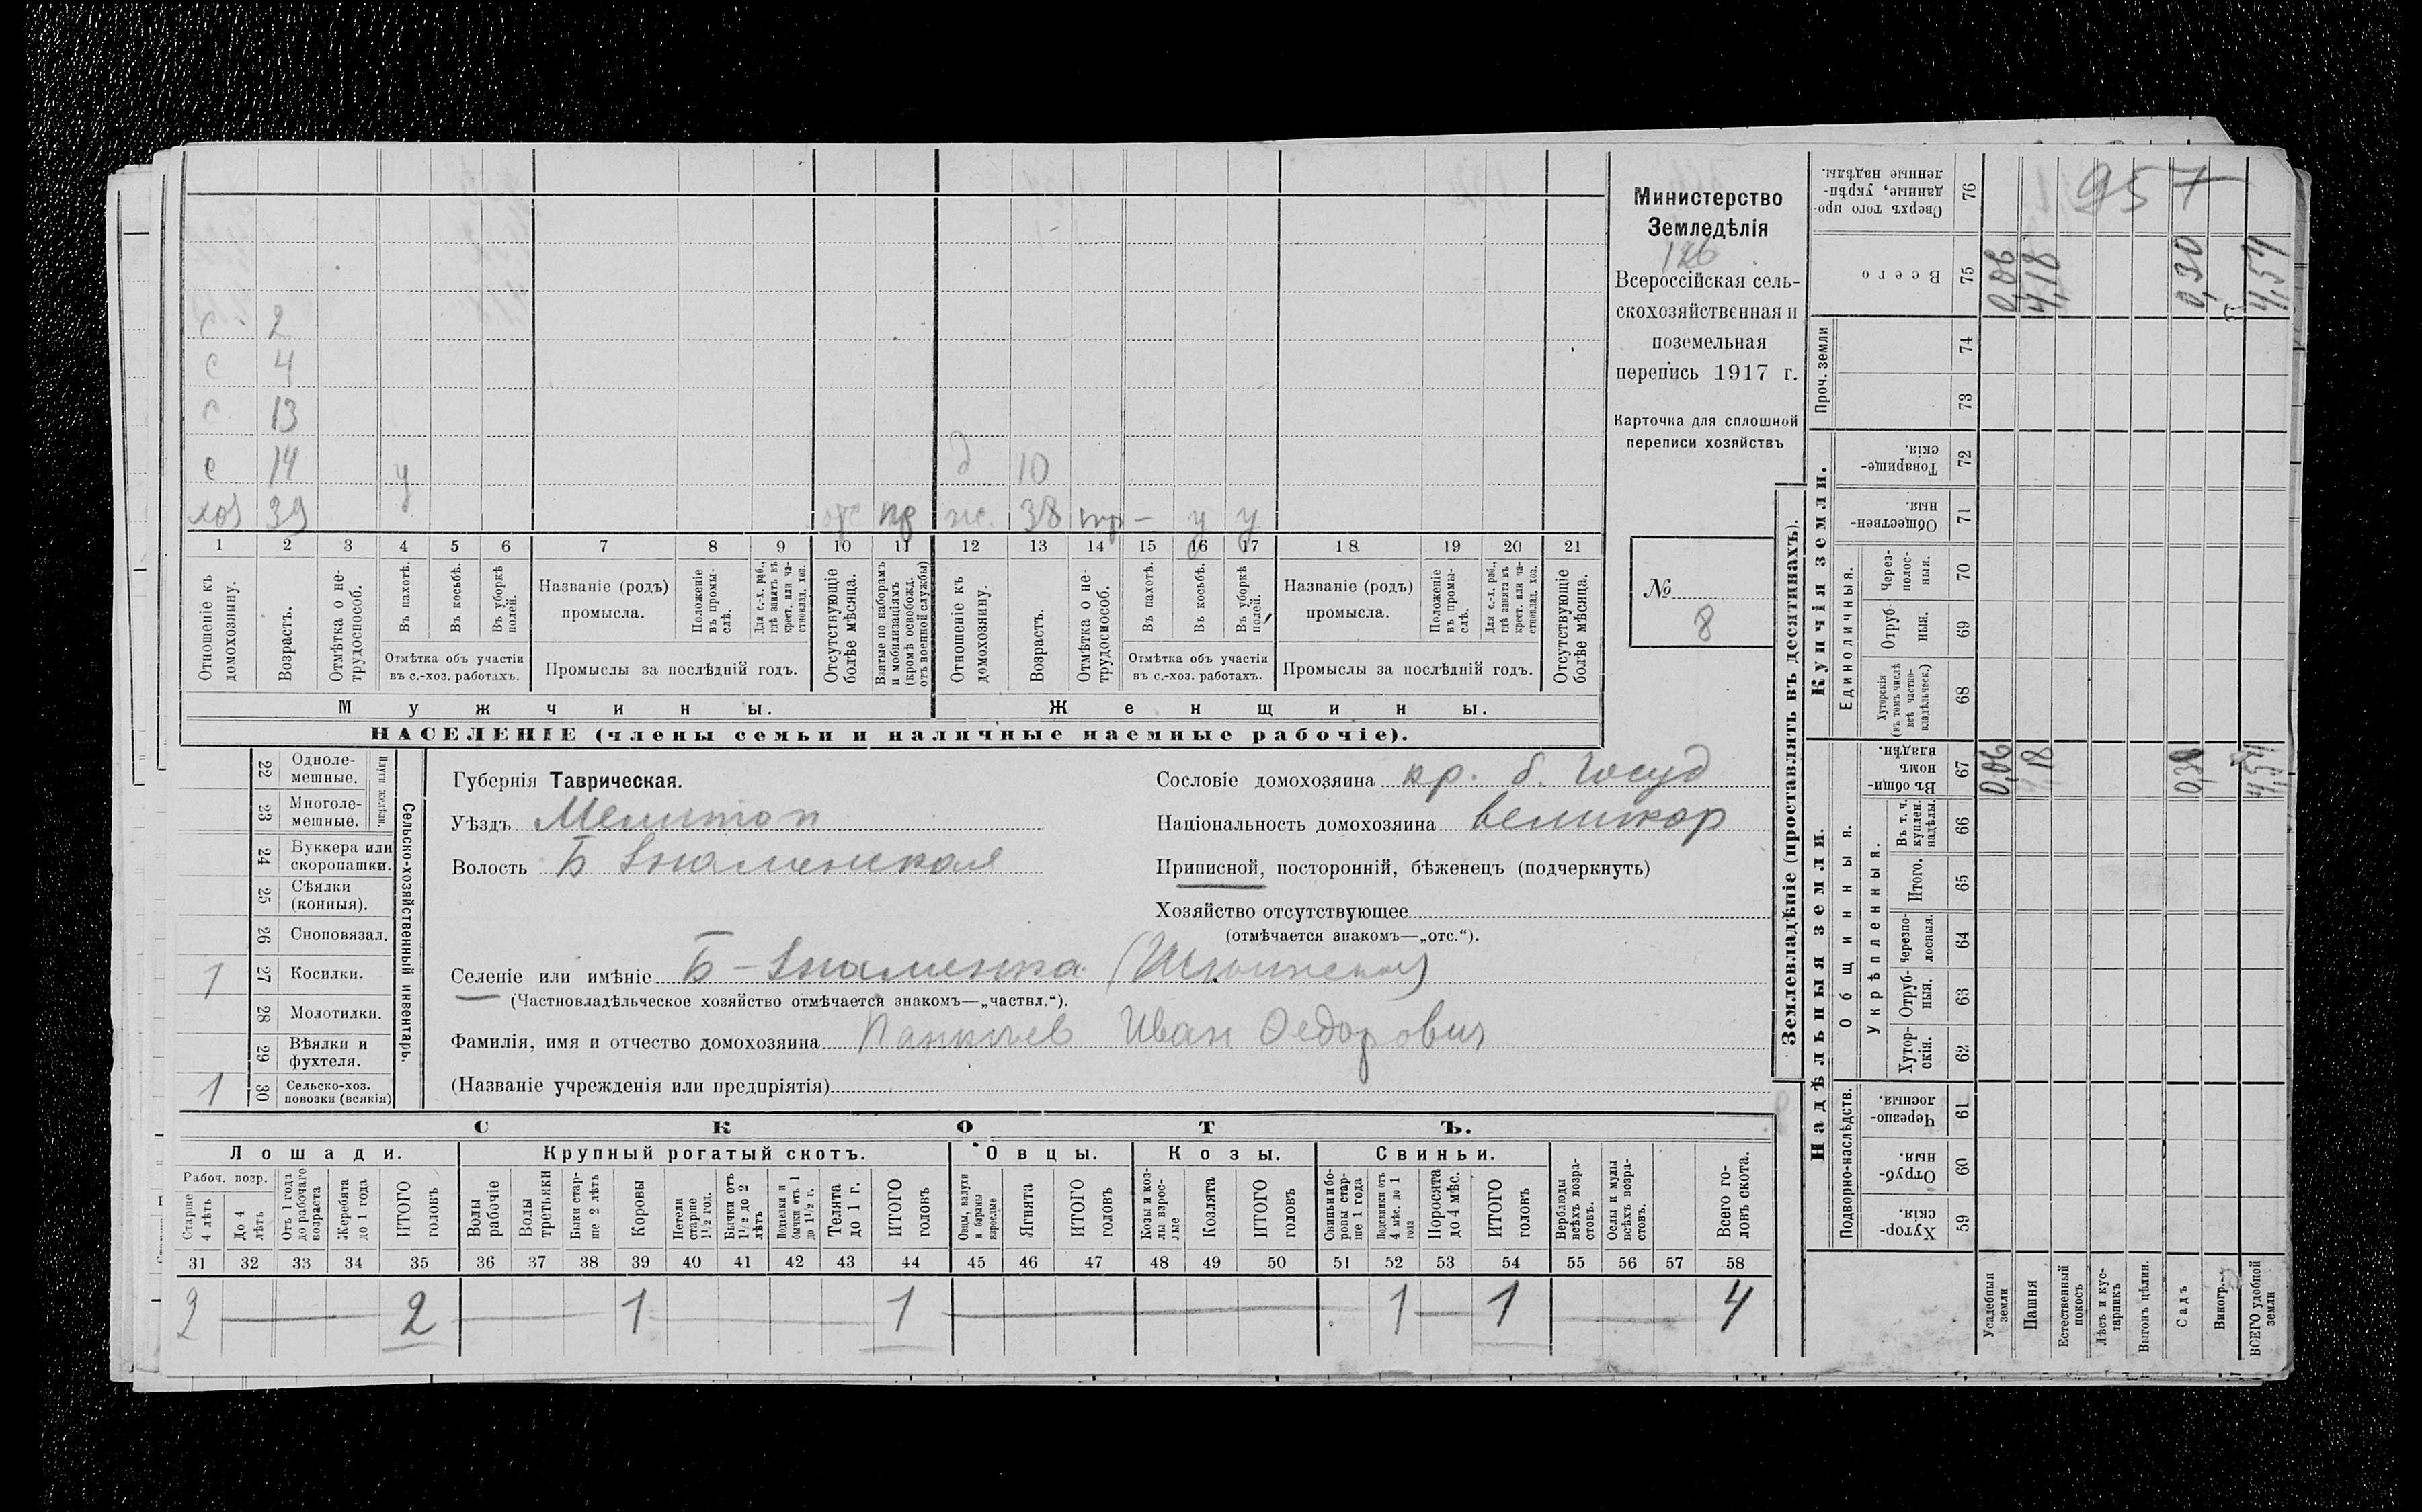 с 2
с 4
с 13
с 14 у д 10
хоз 39 отс пр ж. 38 тр – у у
1 2 3 4 5 6 7 8 9 10 11 12 13 14 15 16 17 18 19 20 21
Отношеніе къ домохозяину.
Возрастъ.
Отмѣтка о не-трудоспособ.
Въ пахотѣ.
Въ косьбѣ.
Въ уборкѣ полей.
Отмѣтка объ участіи
въ с.-хоз. работахъ.
Названіе (родъ)
промысла.
Положеніе въ промы-слѣ.
Для с.-х. раб., гдѣ занятъ въ крест. или ча-стновлад. хоз.
Промыслы за послѣдній годъ.
Отсутствующіе болѣе мѣсяца.
Взятые по наборамъ и мобилизаціямъ (кромѣ освобожд. отъ военной службы)
Отношеніе къ домохозяину.
Возрастъ.
Отмѣтка о не-трудоспособ.
Въ пахотѣ.
Въ косьбѣ.
Въ уборкѣ полей.
Отмѣтка объ участіи
въ с.-хоз. работахъ.
Названіе (родъ)
промысла.
Положеніе въ промы-слѣ.
Для с.-х. раб., гдѣ занята въ крест. или ча-стновлад. хоз.
Промыслы за послѣдній годъ.
Отсутствующіе болѣе мѣсяца.
Мужчины. Женщины.
НАСЕЛЕНІЕ (члены семьи и наличные наемные рабочіе).
Министерство
Земледѣлія
126
Всероссійская сель-
скохозяйственная и
поземельная
перепись 1917 г.
Карточка для сплошной
переписи хозяйствъ
№
8
22 Одноле-мешные.
23 Многоле-мешные.
Плуги желѣзн.
24 Буккера или скоропашки.
25 Сѣялки (конныя).
26 Сноповязал.
1 27 Косилки.
28 Молотилки.
29 Вѣялки и фухтеля.
1 30 Сельско-хоз. повозки (всякія)
Сельско-хозяйственный инвентарь.
Губернія Таврическая.
Уѣздъ Мелитоп
Волость Б Знаменская
Сословіе домохозяина кр. б. Госуд
Національность домохозяина великор
Приписной, посторонній, бѣженецъ (подчеркнуть)
Хозяйство отсутствующее
(отмѣчается знакомъ—„отс.“).
Селеніе или имѣніе Б-Знаменка
(Частновладѣльческое хозяйство отмѣчается знакомъ—„частвл.“).
Фамилія, имя и отчество домохозяина Иван Федорович
(Названіе учрежденія или предпріятія)
СКОТЪ.
Лошади. Крупный рогатый скотъ. Овцы. Козы. Свиньи.
Рабоч. возр.
Старше 4 лѣтъ
До 4 лѣтъ
Отъ 1 года до рабочаго возраста
Жеребята до 1 года
ИТОГО головъ
Волы рабочіе
Волы третьяки
Быки стар-ше 2 лѣтъ
Коровы
Нетели старше 1½ год.
Бычки отъ 1½ до 2 лѣтъ
Подтелки и бычки отъ 1 до 1½ г.
Телята до 1 г.
ИТОГО головъ
Овцы, валухи и бараны взрослые
Ягнята
ИТОГО головъ
Козы и коз-лы взрос-лые
Козлята
ИТОГО головъ
Свиньи и бо-ровы стар-ше 1 года
Подсвинки отъ 4 мѣс. до 1 года
Поросята до 4 мѣс.
ИТОГО головъ
Верблюды всѣхъ возра-стовъ.
Ослы и мулы всѣхъ возра-стовъ.
Всего го-ловъ скота.
31 32 33 34 35 36 37 38 39 40 41 42 43 44 45 46 47 48 49 50 51 52 53 54 55 56 57 58
2 2 1 1 1 1 4
Землевладѣніе (проставлять въ десятинахъ).
Купчія земли.
Надѣльныя земли.
957
Сверхъ того про-данные, укрѣп-ленные надѣлы. 76
Всего 75 0,06 4,18 0,30 4,54
Проч. земли 74
73
Товарище-скія. 72
Обществен-ныя. 71
Единоличныя.
Через-полос-ныя. 70
Отруб-ныя. 69
Хуторскія (въ томъ числѣ всѣ частно-владѣльческ.) 68
Въ общин-номъ владѣн. 67 0,06 4,18 0,30 4,54
Общинныя.
Укрѣпленныя.
Въ т. ч. куплен. надѣлы. 66
Итого. 65
Черезпо-лосныя. 64
Отруб-ныя. 63
Хутор-скія. 62
Подворно-наслѣдств.
Черезпо-лосныя. 61
Отруб-ныя. 60
Хутор-скія. 59
Усадебныя земли
Пашня
Естественный покосъ
Лѣсъ и кус-тарникъ
Выгонъ цѣлин.
Садъ
Виногр.
ВСЕГО удобной земли